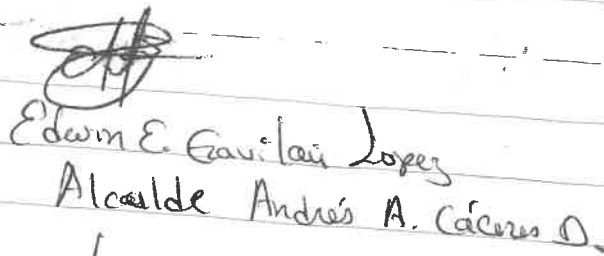 Edwin E. Gavilan Lopez
Alcalde Andrés A. Cáceres D.